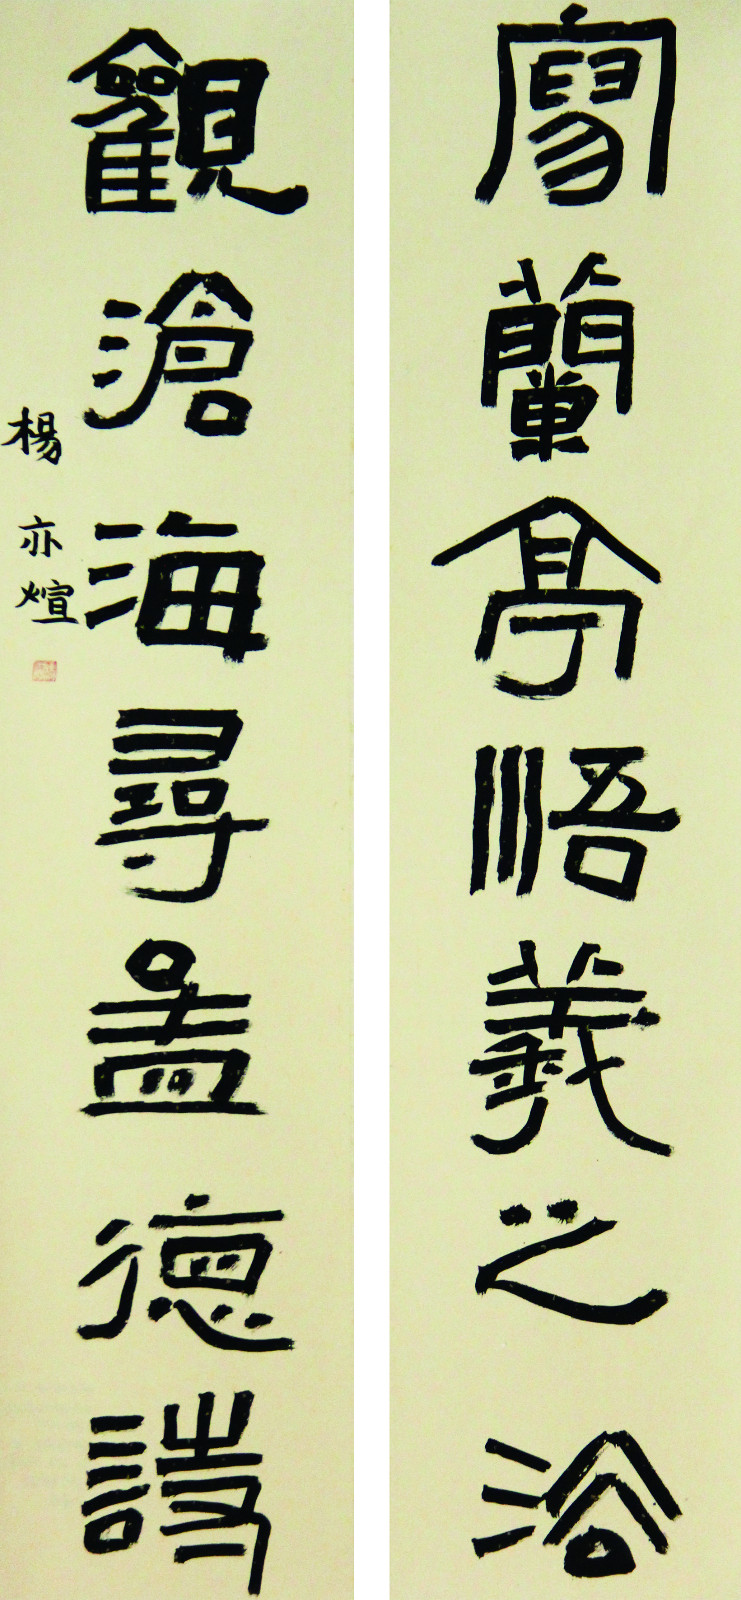 寫蘭亭悟羲之
觀滄海尋孟德詩
楊亦煊